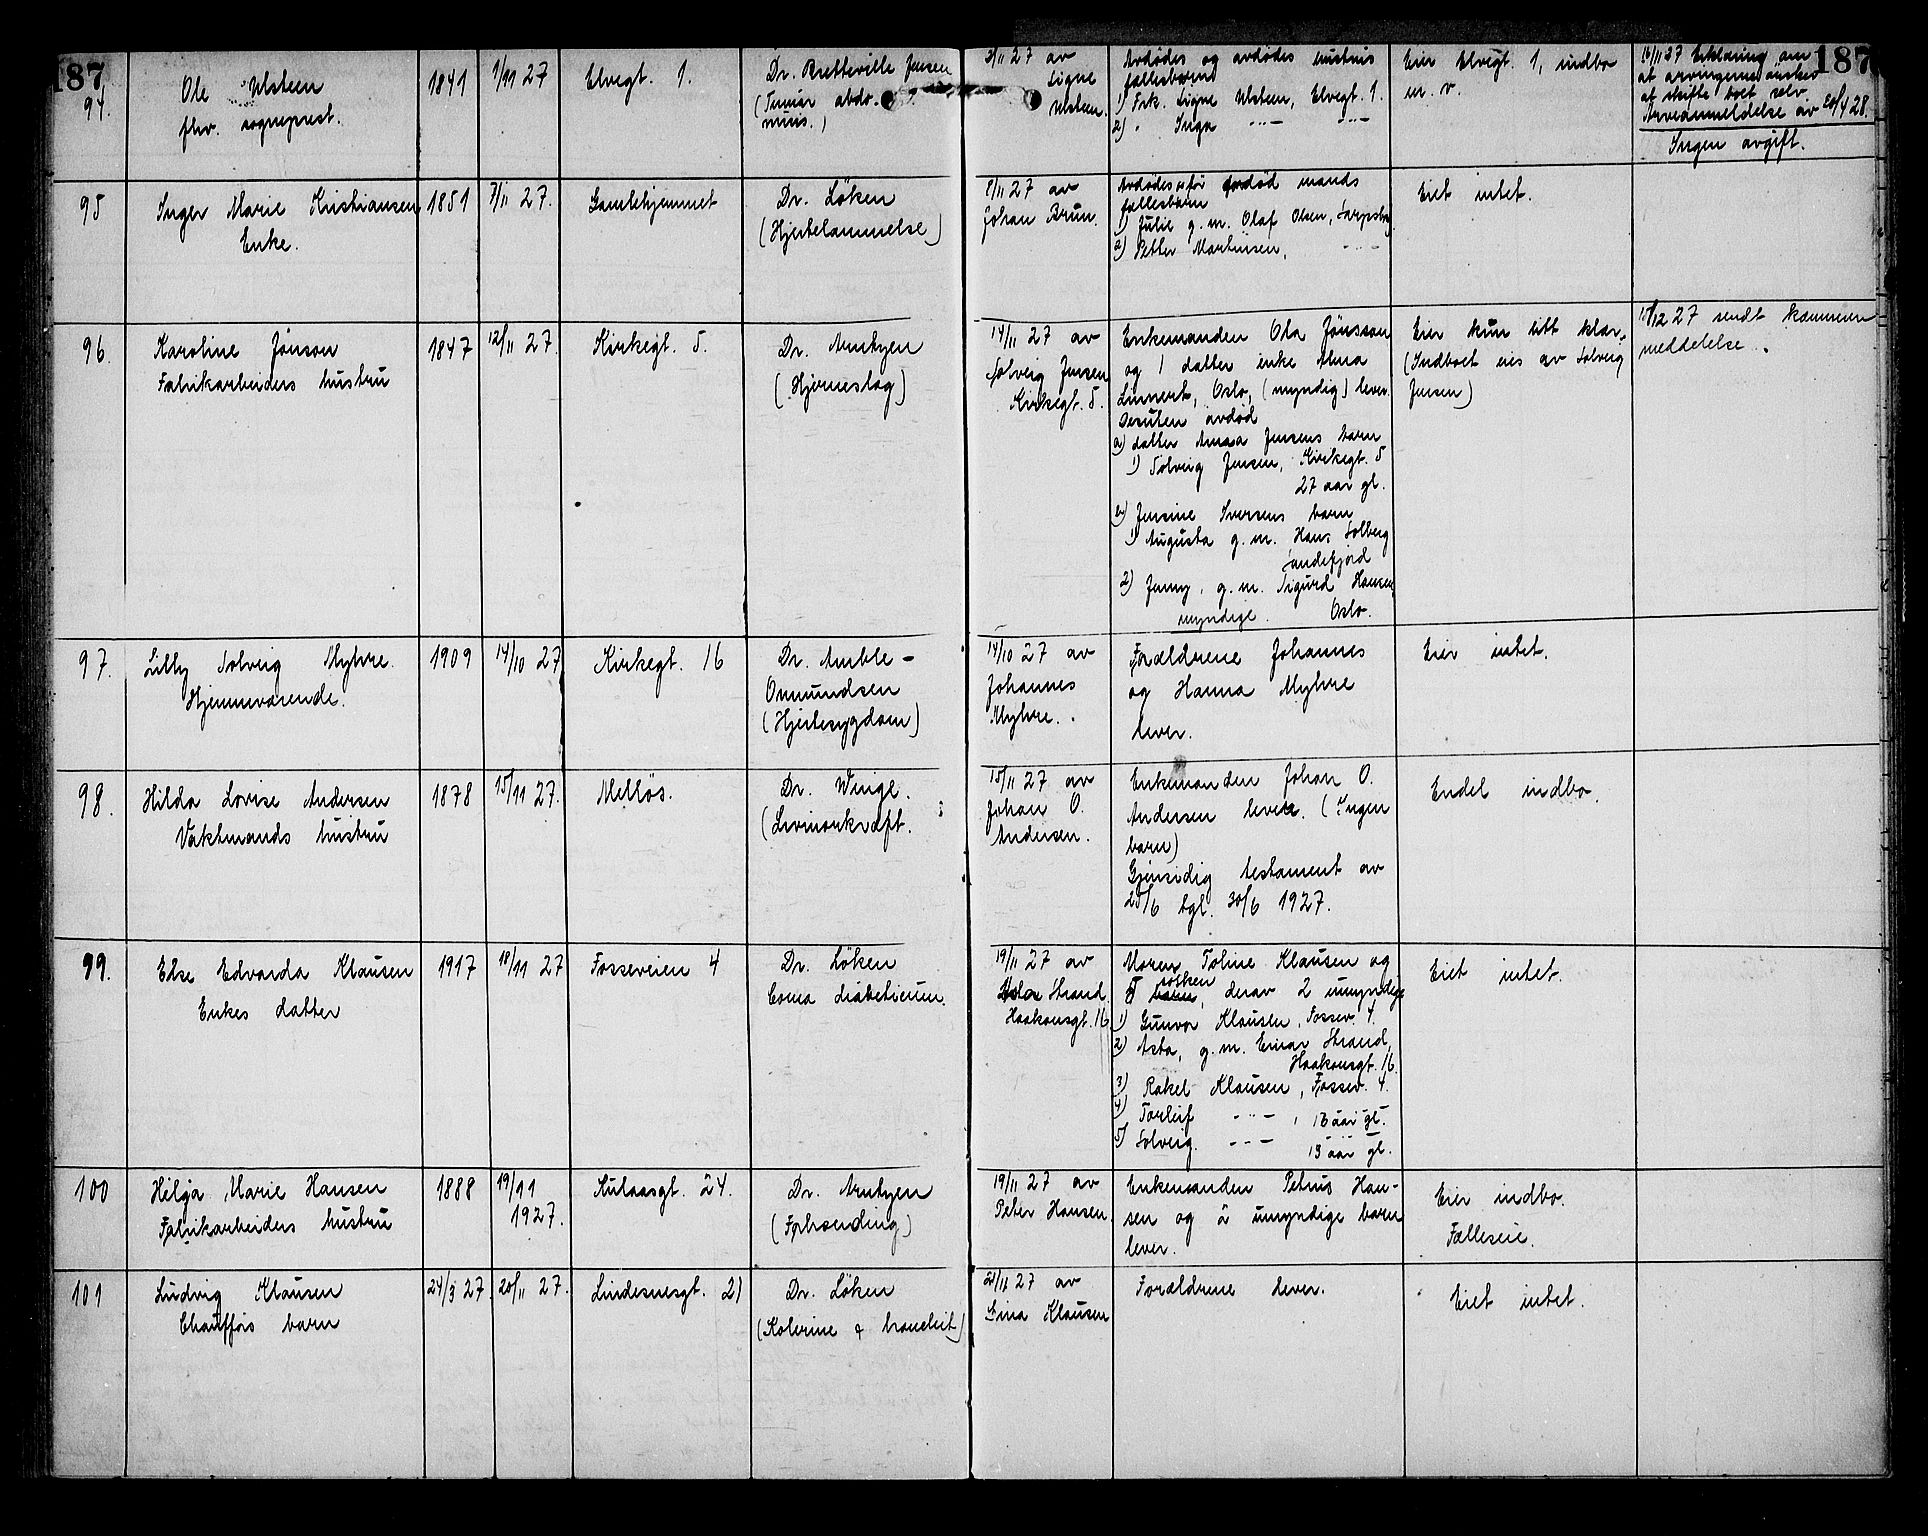 187
187
94.
Ole Ulsteen
fhv. sogneprest.
1841
1/11 27
Elvegt. 1.
Dr. Bretteville Jensen
(Tumor abdo-
minis.)
3/11 27 av
Signe
Ulsteen.
Avdødes og avdødes hustrus
fællesbarn
1) Frk. Signe Ulsteen, Elvegt. 1.
2) " Inga -"- -"-
Eier Elvegt. 1, indbo
m. v.
16/11 27 Erklæring om
at arvingerne ønsker
at skifte boet selv.
Arveanmeldelse av 20/4 28.
Ingen avgift.
95
Inger Marie Kristiansen
Enke.
1851
7/11 27.
Gamlehjemmet
Dr. Löken
(Hjertelammelse)
8/11 27 av
Johan Brun.
Avdødes og før avdød mands
fællesbarn
1) Julie g. m. Olaf Olsen, Sarpsborg
2) Petter Martinsen, -"-
Eiet intet.
96.
Karoline Jönson
Fabrikarbeiders hustru
1847
12/11 27.
Kirkegt. 5.
Dr. Arntzen
(Hjerneslag)
14/11 27 av
Solveig Jensen
Kirkegt. 5.
Enkemanden Ola Jönsson
og 1 datter enke Alma
Linnert, Oslo, (myndig) lever.
Desuten avdød
a) datter Annas Jensens barn
1) Solveig Jensen, Kirkegt. 5
27 aar gl.
b) Jensine Iversens barn
1) Augusta g. m. Hans Solberg
Sandefjord
2) Jenny, g. m. Sigurd Hansen,
myndige. Oslo.
Eier kun litt klær.
(Indboet eies av Solveig
Jensen)
12/12 27 sendt kæmner
meddelelse.
97.
Lilly Solveig Myhre.
Hjemmeværende.
1909
14/10 27
Kirkegt. 16
Dr. Amble-
Ommundsen
(Hjertesygdom)
14/10 27 av
Johannes
Myhre.
Forældrene Johannes
og Hanna Myhre
lever.
Eier intet.
98.
Hilda Lovise Andersen
Vaktmands hustru
1878
15/11 27.
Melløs.
Dr. Winge.
(Livmorkræft.
15/11 27 av
Johan O.
Andersen.
Enkemanden Johan O.
Andersen lever. (Ingen
barn)
Gjensidig testament av
25/6 tgl. 30/6 1927.
Endel indbo.
99.
Else Edvarda Klausen
Enkes datter
1917
18/11 27
Fosseveien 4
Dr. Löken
Coma diabeticum.
19/11 27 av
Strand.
Haakonsgt. 16
Moren Toline Klausen og
5 søsken, derav 2 umyndige
1) Gunvor Klausen, Fossev. 4.
2) Asta, g. m. Einar Strand,
Haakonsgt. 16.
3) Rakel Klausen, Fossev. 4.
4) Torleif -"-, 16 aar gl.
5) Solveig. -"- 13 aar gl.
Eiet intet.
100
Helga Marie Hansen
Fabrikarbeiders hustru
1888
19/11
1927.
Kulaasgt. 24.
Dr. Arntzen
(Forbrænding)
19/11 27 av
Peter Hansen.
Enkemanden Petrus Han-
sen og 2 umyndige barn
lever.
Eier indbo.
Fælleseie.
101
Ludvig Klausen
Chaufførs barn
24/3 27
20/11 27.
Lindesnesgt. 21
Dr. Löken
(Kolerine & bronchit)
21/11 27 av
Lina Klausen
Forældrene lever.
Eiet intet.